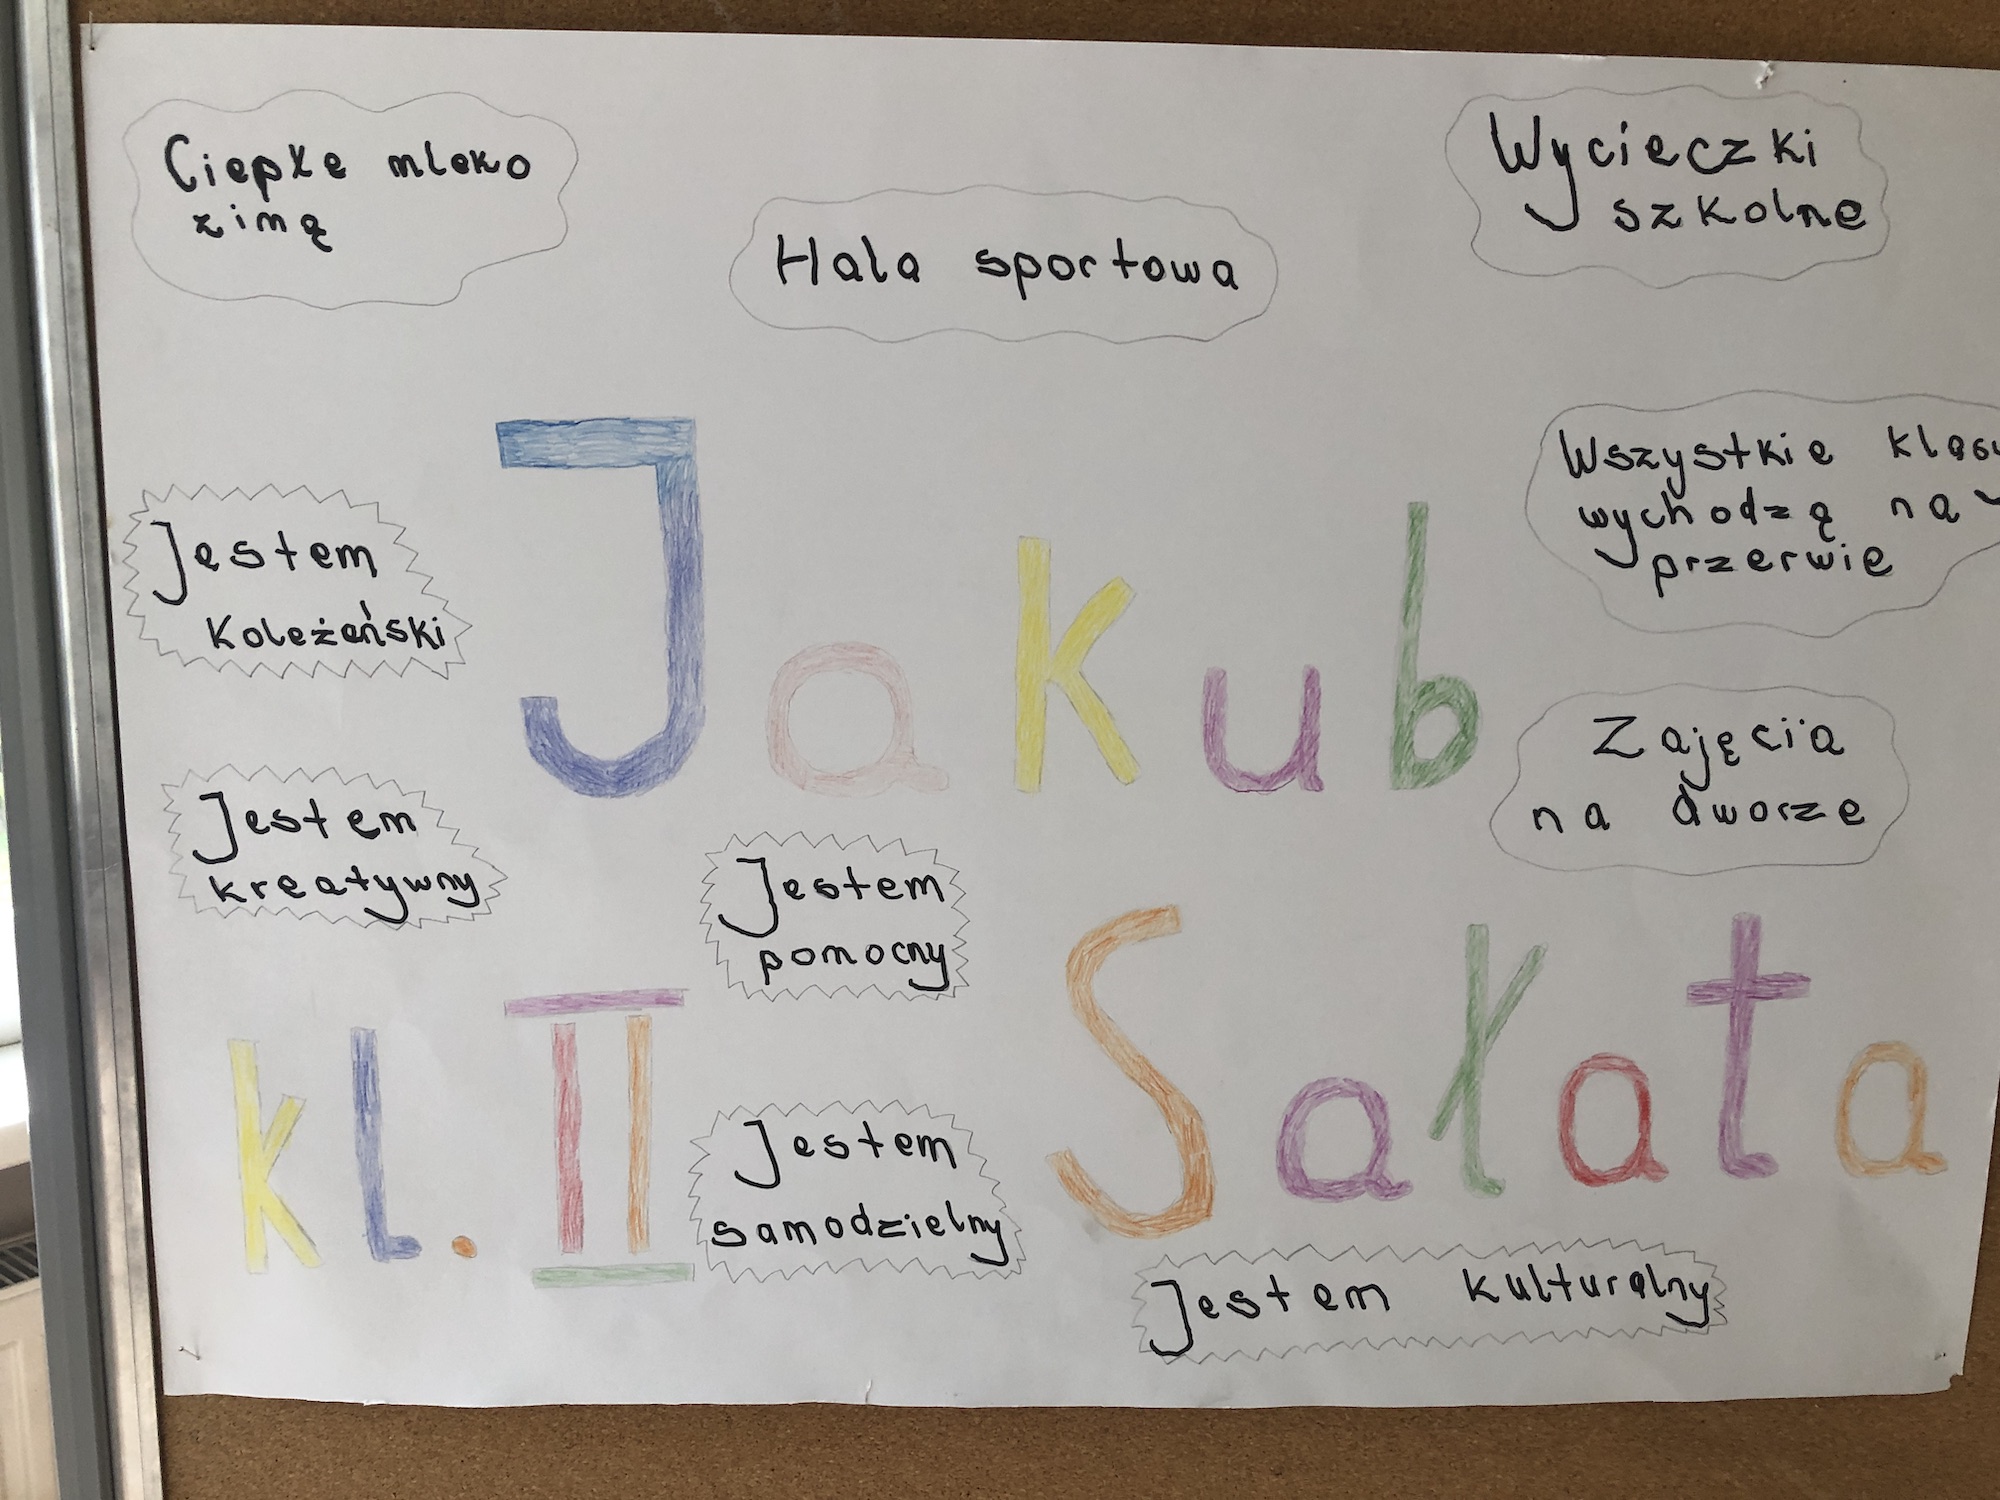 Ciepłe mleko
zimą
Hala sportowa
Wycieczki
szkolne
Wszystkie klasy
wychodzą na
przerwie
Jestem
koleżeński
Jakub
Zajęcia
na dworze
Jestem
kreatywny
Jestem
pomocny
kl. II
Sałata
Jestem
samodzielny
Jestem kulturalny